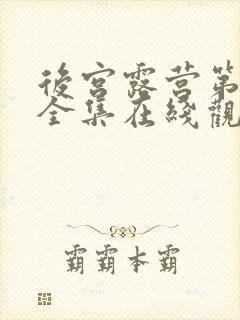 後宮露营第
全集在綫觀
霸霸本霸